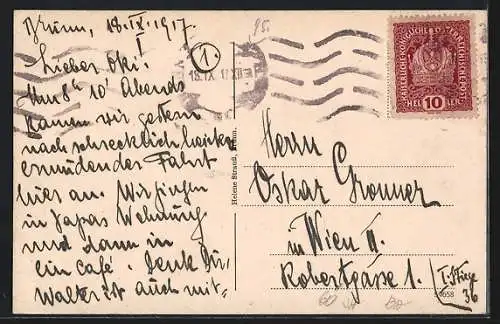 Brünn, 18.IX.1917.
I
Lieber Oki!
Um 8h 10' Abends
kamen wir gestern
nach schrecklich heißer
ermüdender Fahrt
hier an. Wir gingen
in Papas Wohnung
und dann in
ein Café. Denk Dir,
Walter ist auch mit-
1
18.IX.17.XII
KAISERLICHE KÖNIGLICHE ÖSTERREICHISCHE POST
HELLER 10
Helene Strauß, Brünn.
Herrn
Oskar Gronner
in Wien II.
Robertgasse 1. I. Stiege
36